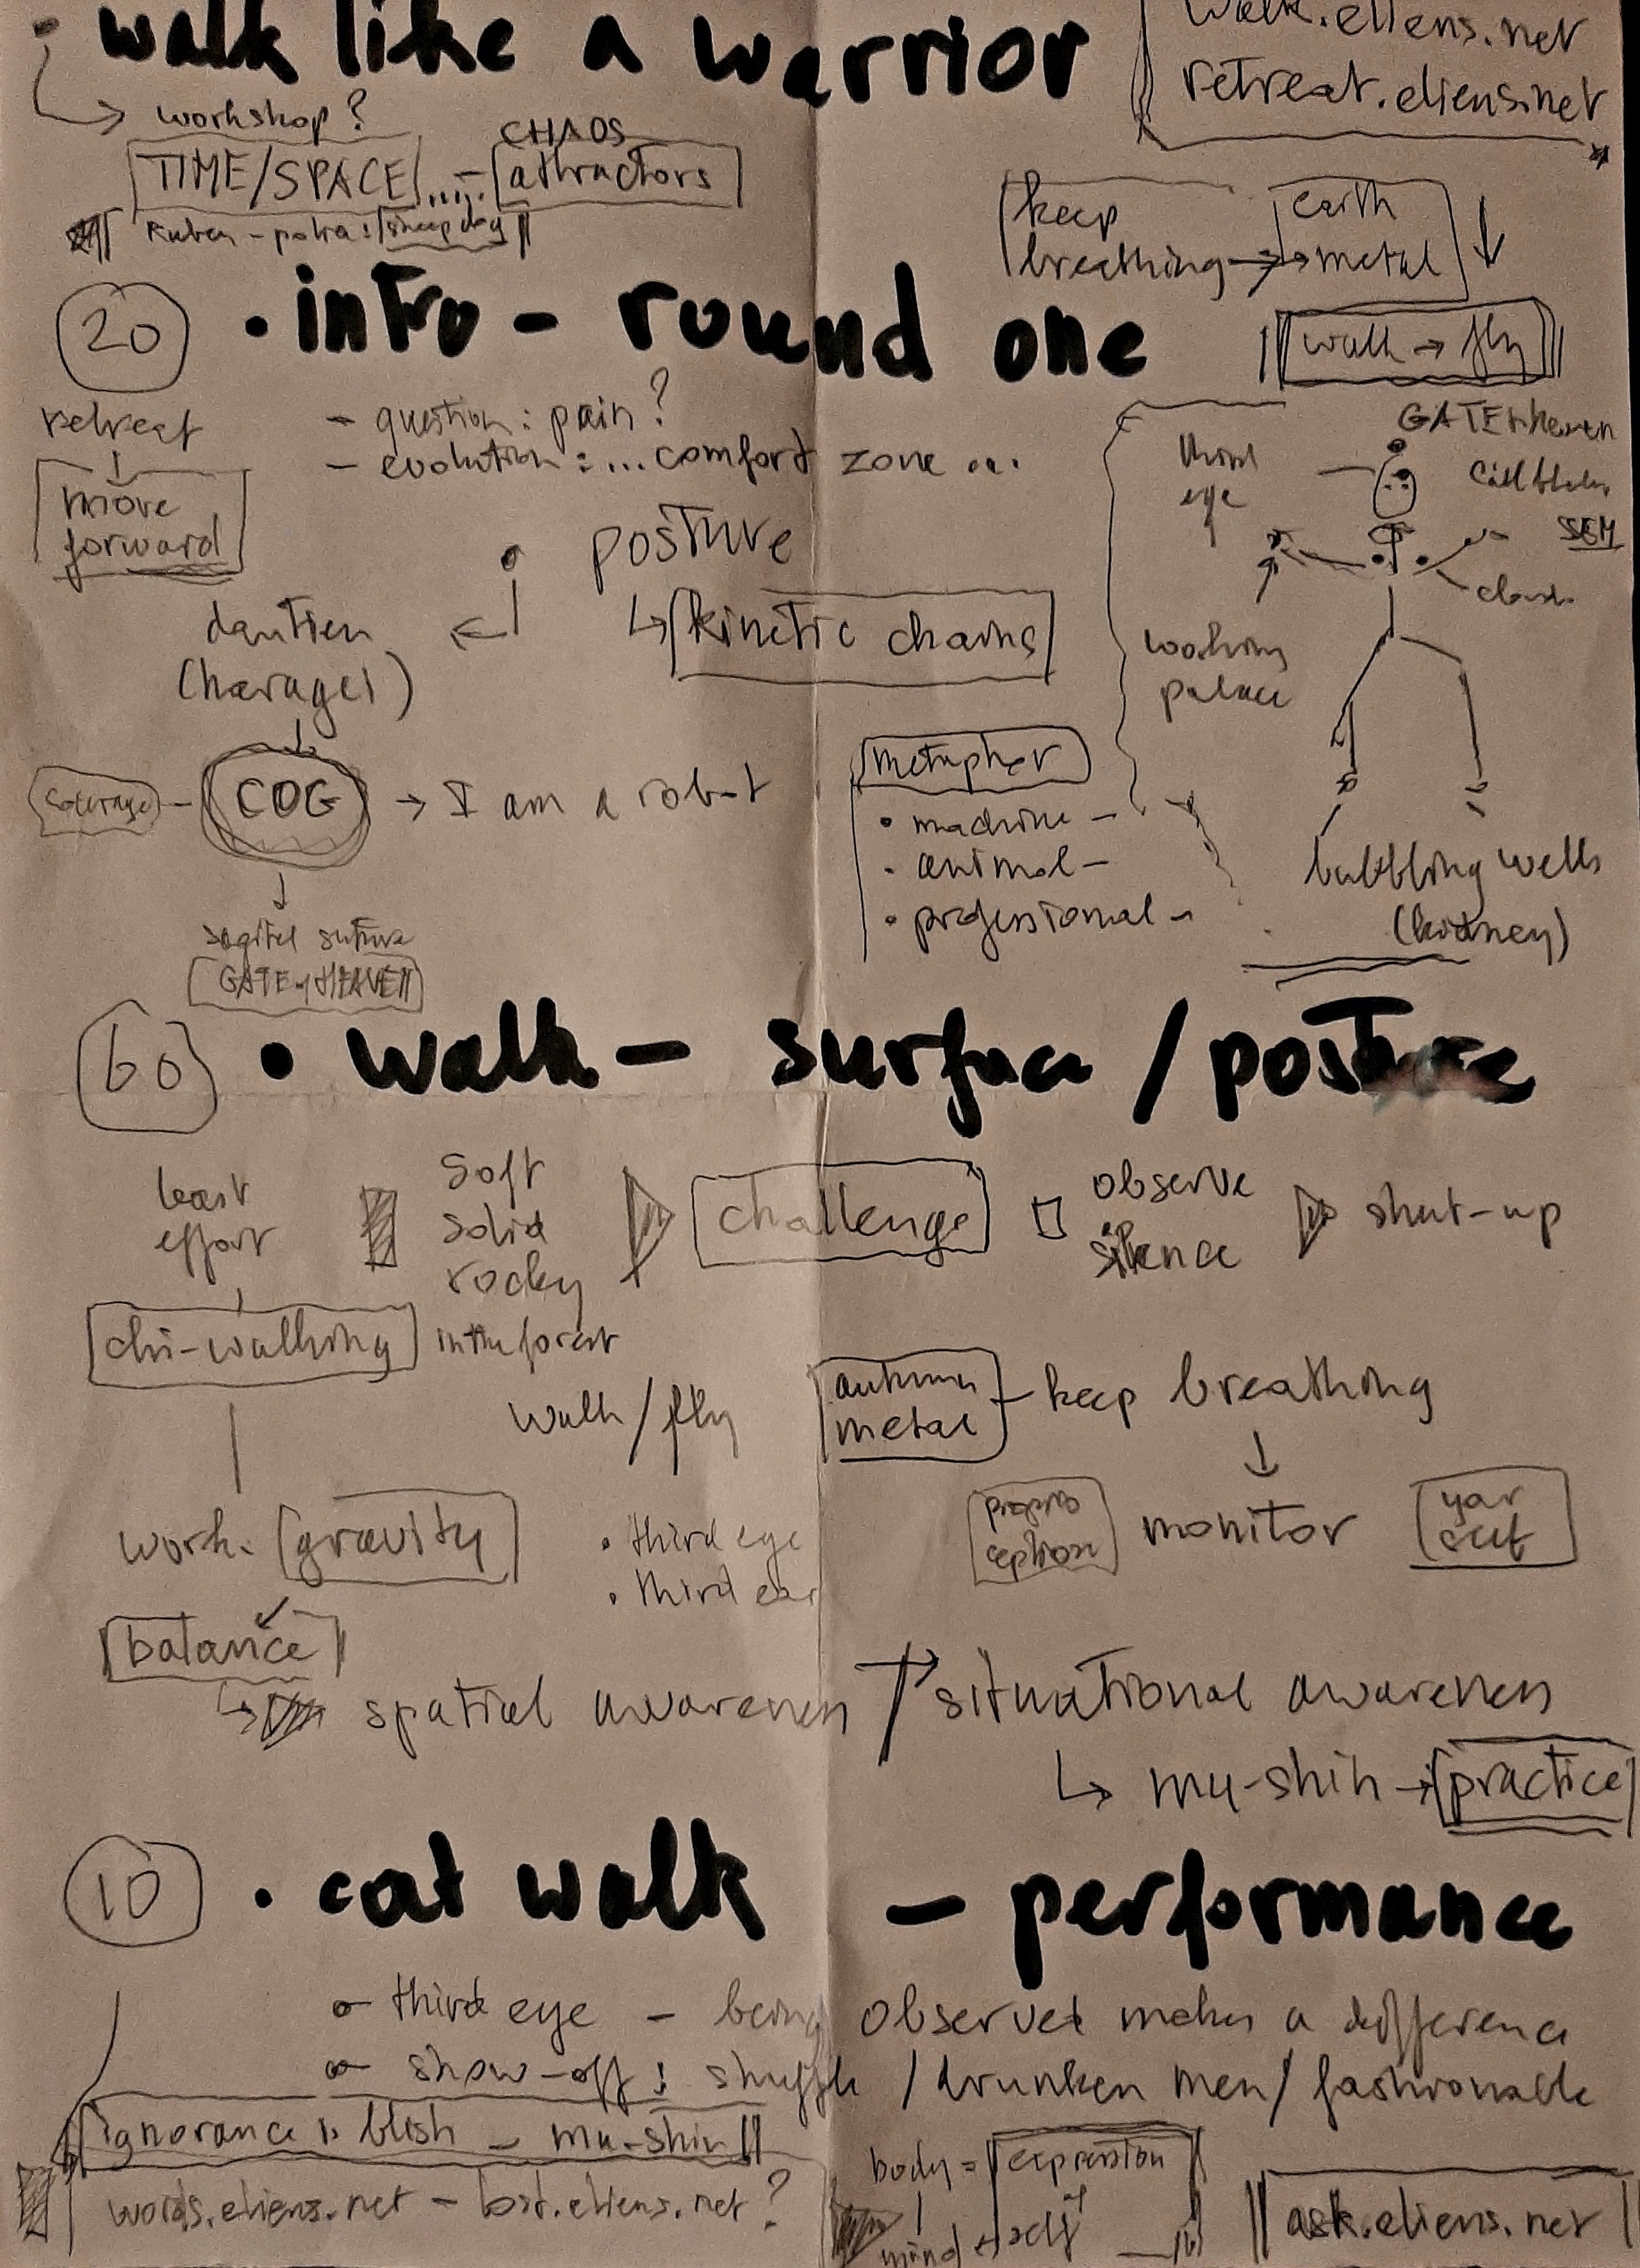 • walk like a warrior
walk.eliens.net
retreat.eliens.net
workshop?
CHAOS
TIME/SPACE ..... - attractors
keep breathing → earth → metal ↓
20 • intro - round one
walk → fly
retreat
↓
move
forward
- question: pain?
- evolution: ... comfort zone ...
posture
↳ kinetic chains
dantien
(haragei)
COG → I am a robot
GATE of HEAVEN
metaphor
• machine -
• animal -
• professional -
GATE heaven
third
eye
palace
bubbling wells
(kidney)
60 • walk - surface / posture
least
effort
soft
solid
rocky
in the forest
challenge
observe
silence
shut-up
chi-walking
walk/fly
autumn
metal
- keep breathing
↓
proprio
ception
monitor
work. gravity
• third eye
• third ear
balance
↳ spatial awareness / situational awareness
↳ mu-shin → practice
10 • cat walk - performance
third eye - being observed makes a difference
show-off: shuffle / drunken men / fashionable
ignorance is blish - mu-shin
words.eliens.net - lost.eliens.net?
body = expression
of
mind self
ask.eliens.net